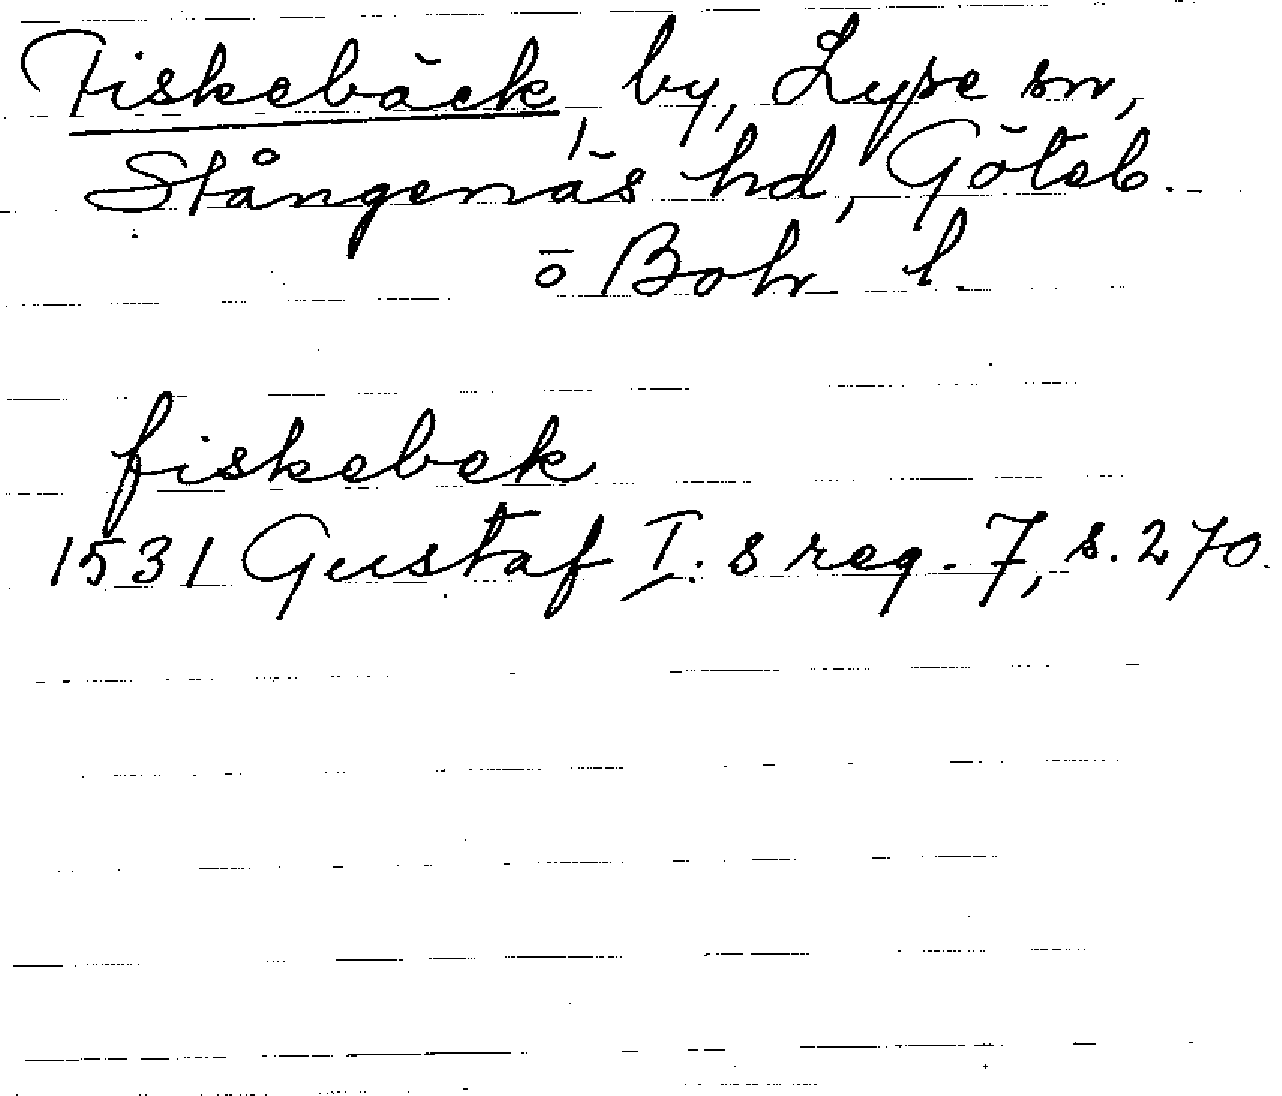 Fiskebäck, by, Lyse sn,
Stångenäs hd, Göteb.
o Bohr l.
fiskebek
1531 Gustaf I:s reg. 7, s. 270.